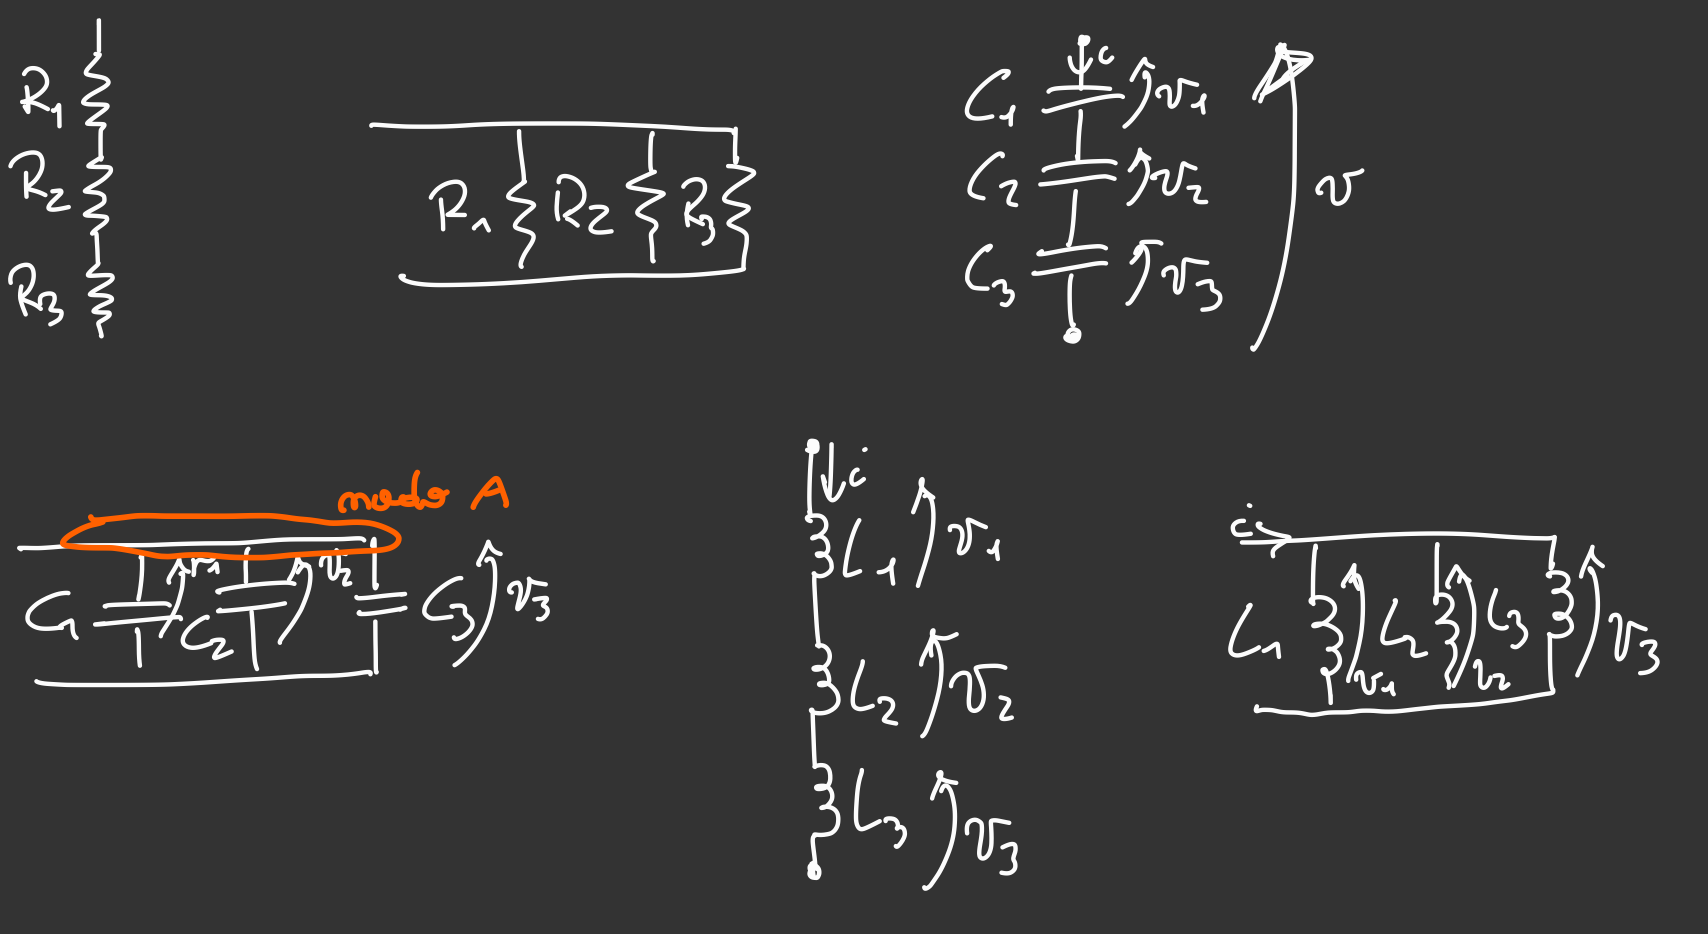 R1
R2
R3
R1 R2 R3
C1 v1
C2 v2
C3 v3
i
v
nodo A
C1 v1 C2 v2 C3 v3
i
L1 v1
L2 v2
L3 v3
i
L1 v1 L2 v2 L3 v3